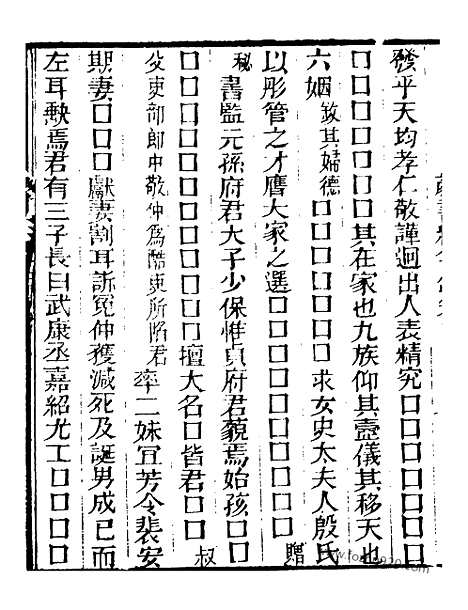 發乎天均孝仁敬謹迥出人表精究□□□□□□
□□□□□其在家也九族仰其壼儀其移天也
六姻致其婦德□□□□□□求女史太夫人殷氏
以彤管之才膺大家之選□□□□□□□贈
秘書監元孫府君大子少保惟貞府君藐焉始孩□□
□□□□□□□□□□擅大名□皆君□□叔
父吏部郎中敬仲為酷吏所陷君率二妹宜芳令裴安
期妻□□□獻妻割耳訴冤仲獲減死及誕男成已而
左耳缺焉君有三子長曰武康丞嘉紹尤工□□□□